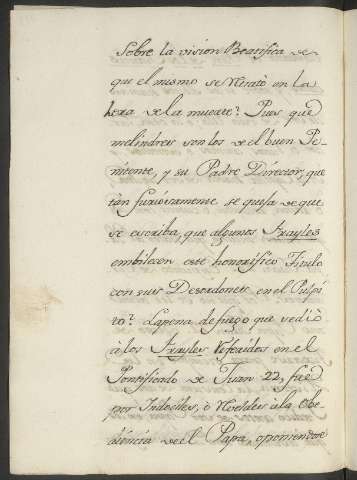 Sobre la vision Beatifica de
que el mismo se retrató en la
hora de la muerte? Pues que
melindres son los de el buen Pe-
nitente, y su Padre Director, que
tàn furiosamente se quexa de que
se escriba, que algunos Frayles
embilecen este honorifico Titulo
con sus Desordenes en el Pulpi
to? La pena de fuego que se diò
à los Frayles referidos en el
Pontificado de Juan 22, fué
por Indociles, è rebeldes à la Obe
diencia de el Papa, oponiendose